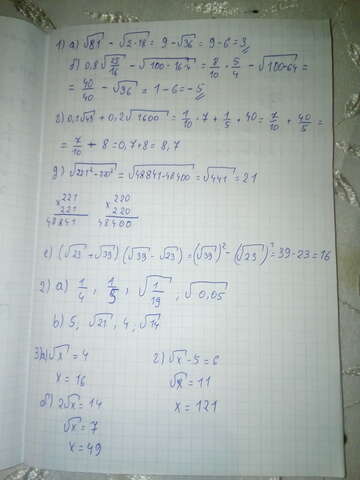 1) a) √81 - √2·18 = 9 - √36 = 9-6 = 3
б) 0,8√25/16 - √100-16·4 = 8/10 · 5/4 - √100-64 =
= 40/40 - √36 = 1-6 = -5
г) 0,1√49 + 0,2√1600 = 1/10 · 7 + 1/5 · 40 = 7/10 + 40/5 =
= 7/10 + 8 = 0,7+8 = 8,7
д) √221²-220² = √48841-48400 = √441 = 21
× 221 × 220
221 220
48841 48400
е) (√23 + √39) (√39 - √23) = (√39)² - (√23)² = 39-23 = 16
2) a) 1/4, 1/5, √1/19, √0,05
b) 5, √21, 4, √14
3) a) √x = 4 г) √x - 5 = 6
x = 16 √x = 11
б) 2√x = 14 x = 121
√x = 7
x = 49